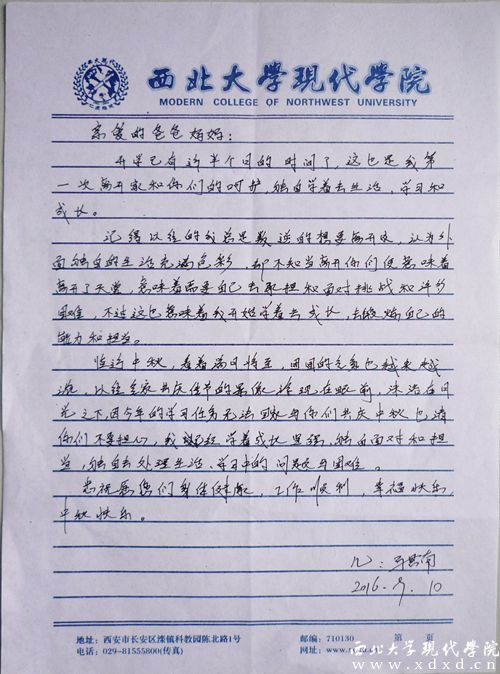 西北大学现代学院
MODERN COLLEGE OF NORTHWEST UNIVERSITY
亲爱的爸爸妈妈:
开学已有近半个月的时间了,这也是我第
一次离开家和你们的呵护,独自学着去生活,学习和
成长。
记得以往的我总是数说的想要离开家,认为外
面独自的生活充满色彩,却不知当离开你们便意味着
离开了天堂,意味着需要自己去承担和面对挑战和许多
困难,不过这也意味着我开始学着去成长,去锻炼自己的
能力和担当。
临近中秋,看着满月将至,团圆的气氛也越来越
浓,以往全家共庆佳节的景像浮现在眼前,沐浴在月
光之下,因今年的学习任务无法回家与你们共庆中秋,也请
你们不要担心,我已经学着成长坚强,独自面对和担
当,独自去处理生活、学习中的问题与困难。
忠祝愿您们身体健康,工作顺利,幸福快乐,
中秋快乐。
儿:
2016.9.10
地址:西安市长安区滦镇科教园陈北路1号
邮编:710130
第 页
电话:029-81555800(传真)
网址:www.
西北大学现代学院
www.xdxd.cn